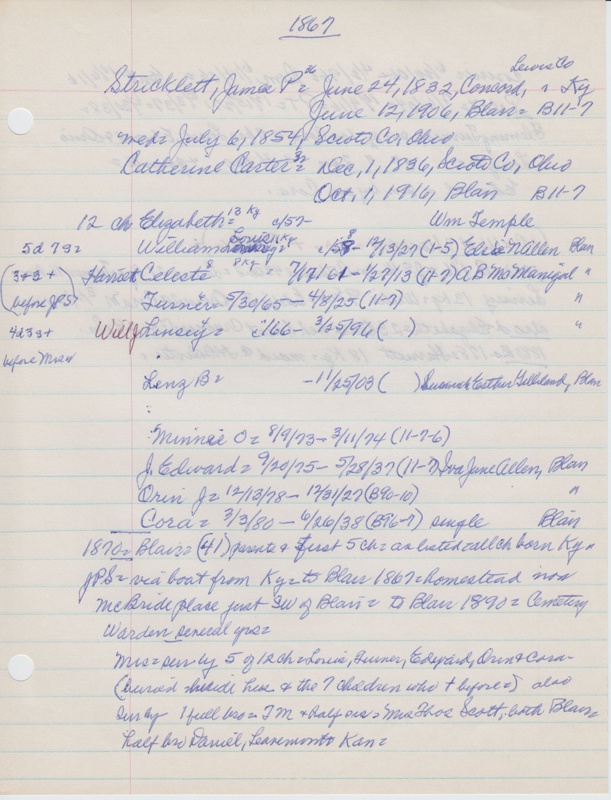 1867
Lewis Co
Stricklett, James P= 36 June 24, 1832, Concord, Ky
June 12, 1906, Blair= B11-7
med= July 6, 1854, Scioto Co, Ohio
Catherine Carter= 32 Dec, 1, 1836, Scioto Co, Ohio
Oct, 1, 1916, Blair B11-7
12 ch Elizabeth= 13 Ky c/57- Wm Temple
5d 7s= William Louis 11 Ky c/58- 12/13/27 (1-5) Elsie N Allen Blair
(3+3+ Harriet Celeste 8 Ky= 7/17/61- 1/27/13 (11-7) A B McManigal "
before JPS) Turner= 5/30/65- 4/8/25 (11-7) "
4d3s+ Will J Linsey= c/66- 3/25/96 ( ) "
before Mrs
Lenz B= -11/25/03 ( ) Susannah Esther Gilliland, Blair
Minnie O= 8/9/73- 3/11/74 (11-7-6)
J. Edward= 9/20/75- 5/28/37 (11-7) Iva Jane Allen, Blair
Orin J= 12/13/78- 12/31/27 (B90-10) "
Cora= 3/3/80- 6/26/38 (B96-7) single Blair
1870= Blair= (41) parents & first 5 ch= as listed= all ch born Ky
JPS= via boat from Ky= to Blair 1867= homestead now
McBride place just SW of Blair= to Blair 1890= Cemetery
Warden several yrs=
Mrs= sur by 5 of 12 ch= Louis, Turner, Edward, Orin & Cora-
(buried beside her & the 7 children who + before=) also
sur by 1 full bro= T M & half sis= Mrs Thos Scott, both Blair=
half bro Daniel, Kan=